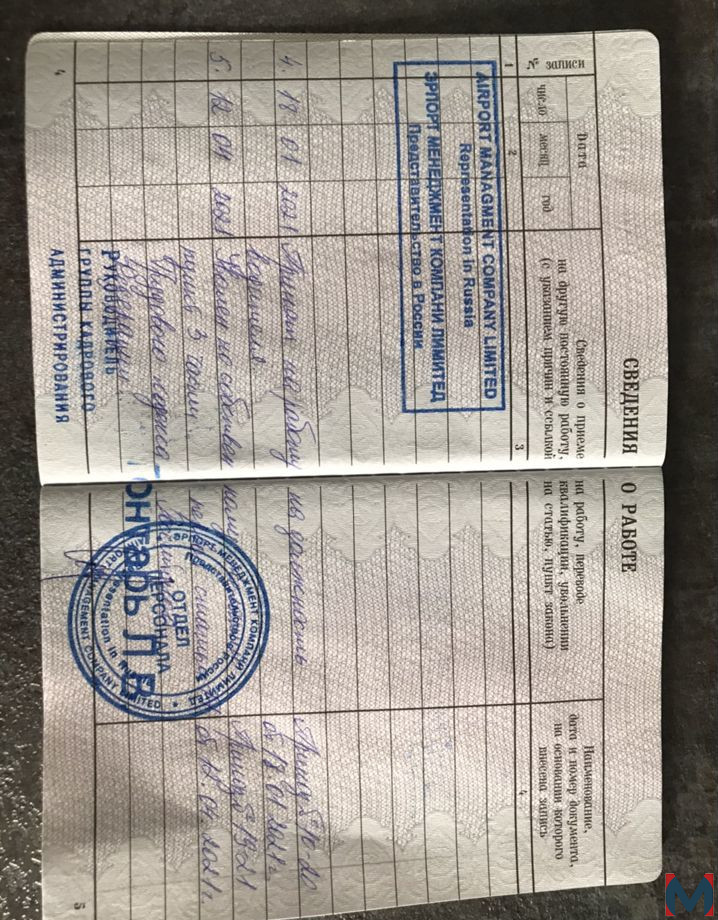 СВЕДЕНИЯ О РАБОТЕ
№ записи
Дата
число
месяц
год
Сведения о приеме на работу, переводе
на другую постоянную работу, квалификации, увольнении
(с указанием причин и ссылкой на статью, пункт закона)
Наименование,
дата и номер документа,
на основании которого
внесена запись
1
2
3
4
AIRPORT MANAGMENT COMPANY LIMITED
Representation in Russia
ЭРПОРТ МЕНЕДЖМЕНТ КОМПАНИ ЛИМИТЕД
Представительство в России
4. 18 01 2021 Принят на работу на должность
водителя.
от 18.01.2021г.
5. 12 04 2021 Уволен по собствен
Приказ
пункт 3 части
от 12.04.2021г.
Трудового кодекса
РУКОВОДИТЕЛЬ
ГРУППЫ КАДРОВОГО
АДМИНИСТРИРОВАНИЯ
ЭРПОРТ МЕНЕДЖМЕНТ КОМПАНИ ЛИМИТЕД
Представительство в России
ОТДЕЛ
ПЕРСОНАЛА
Representation in
MANAGEMENT COMPANY LIMITED
4
5
M